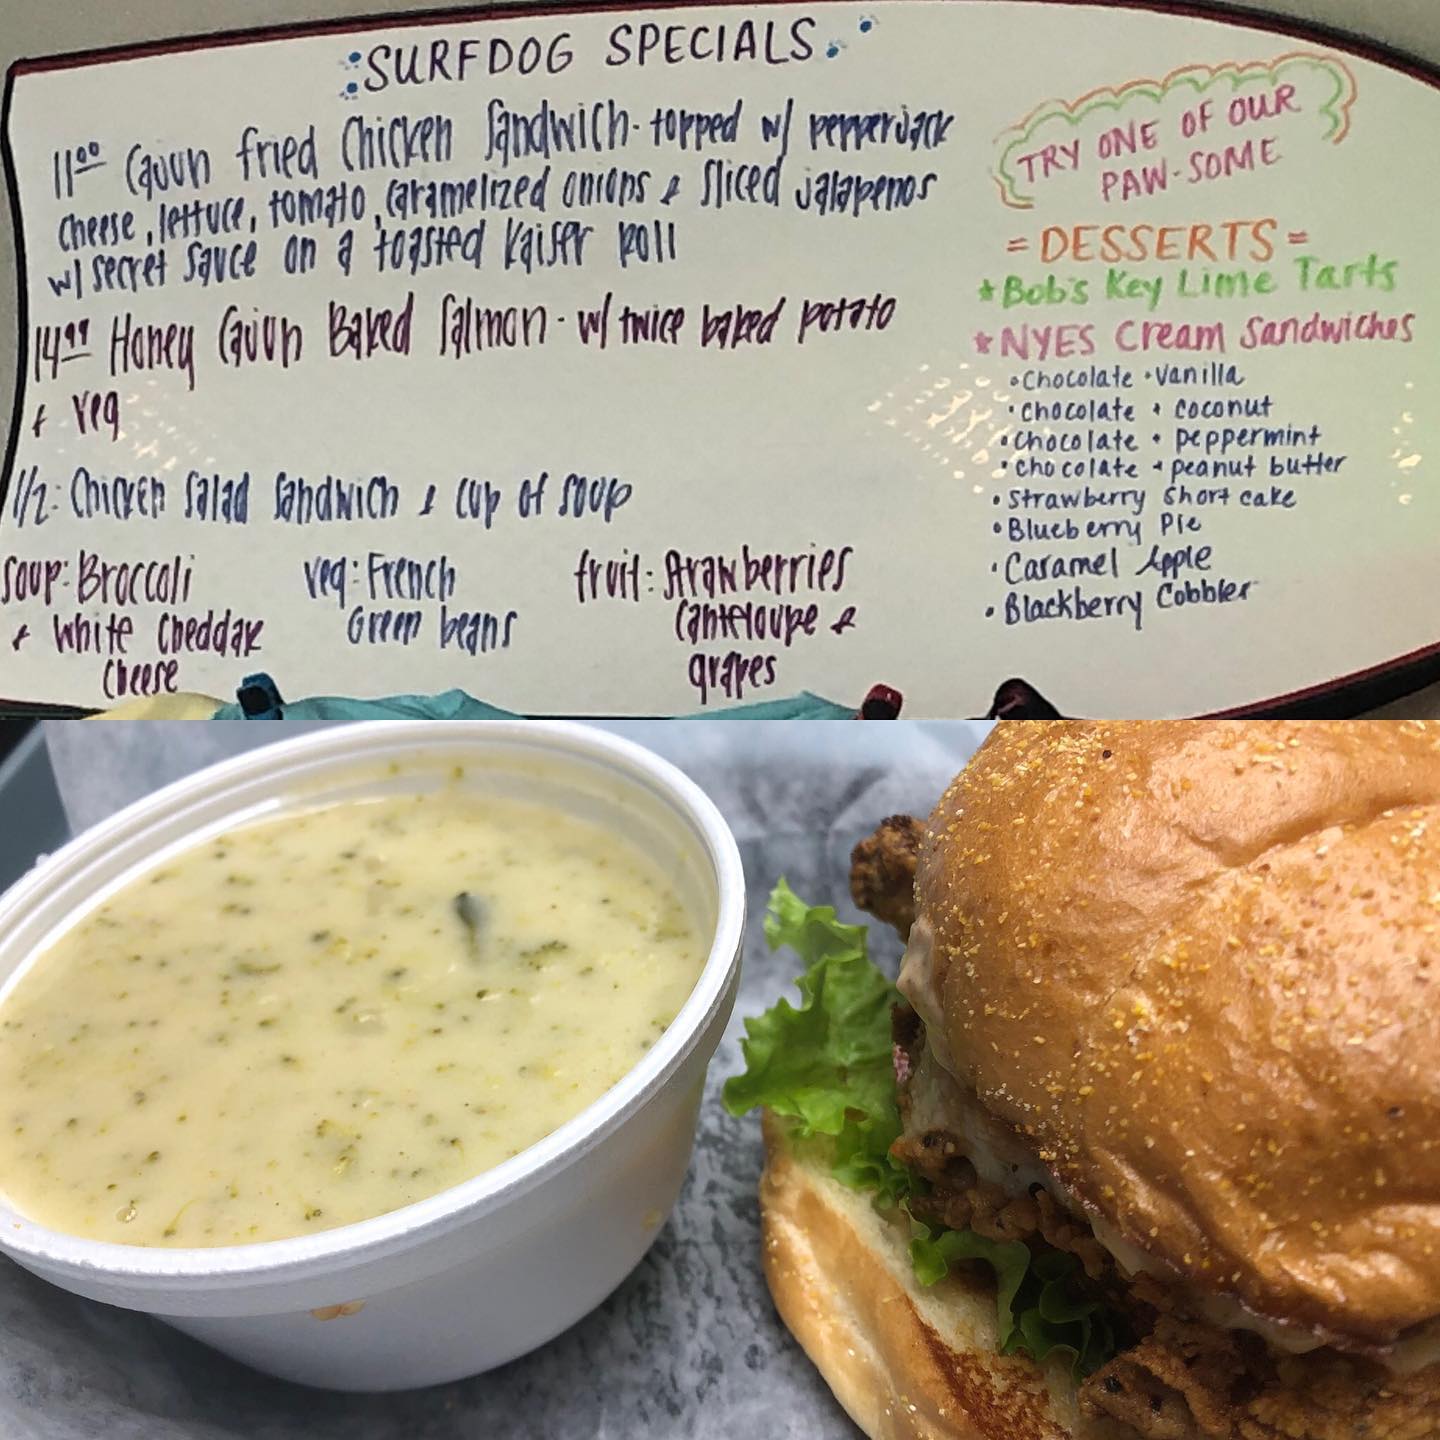 SURFDOG SPECIALS
11⁰⁰ Cajun fried Chicken Sandwich - topped w/ pepperjack
cheese, lettuce, tomato, caramelized onions & sliced jalapenos
w/ secret sauce on a toasted Kaiser Roll
14⁹⁹ Honey Cajun Baked Salmon - w/ twice baked potato
& veg
1/2: Chicken Salad Sandwich & cup of soup
soup: Broccoli
& White Cheddar
Cheese
veg: French
Green beans
fruit: Strawberries
Canteloupe &
grapes
TRY ONE OF OUR
PAW-SOME
= DESSERTS =
* Bob's Key Lime Tarts
* NYES Cream Sandwiches
• Chocolate • Vanilla
• Chocolate + coconut
• Chocolate + peppermint
• chocolate + peanut butter
• Strawberry Short cake
• Blueberry Pie
• Caramel Apple
• Blackberry Cobbler